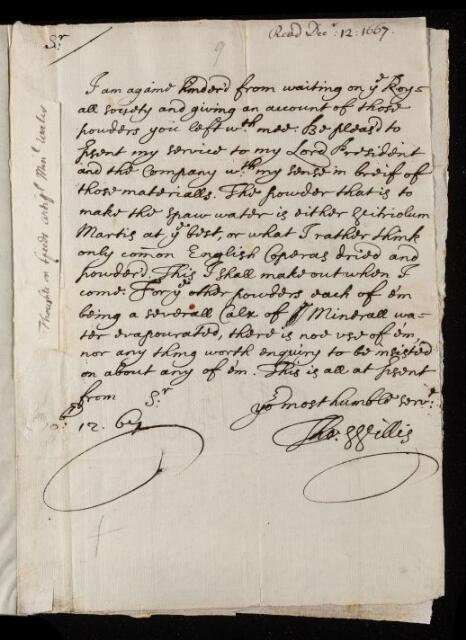 Read Decr. 12. 1667.
Sr
9
I am againe hinderd from waiting on ye Roy-
all society and giving an account of those
powders you left wth mee. Be pleasd to
psent my service to my Lord President
and the Company wth my sense in breif of
those materialls. The powder that is to
make the spaw water is either Vitriolum
Martis at ye best, or what I rather think
only comon English Coperas dried and
powderd. This I shall make out when I
come. For ye other powders each of em
being a severall Calx of Minerall wa-
ter evapourated, there is noe use of em
nor any thing worth enquiry to be insisted
on about any of em. This is all at psent
from Sr
yor most humble servt
12. 67
Tho: Willis
Thoughts on Minl Water